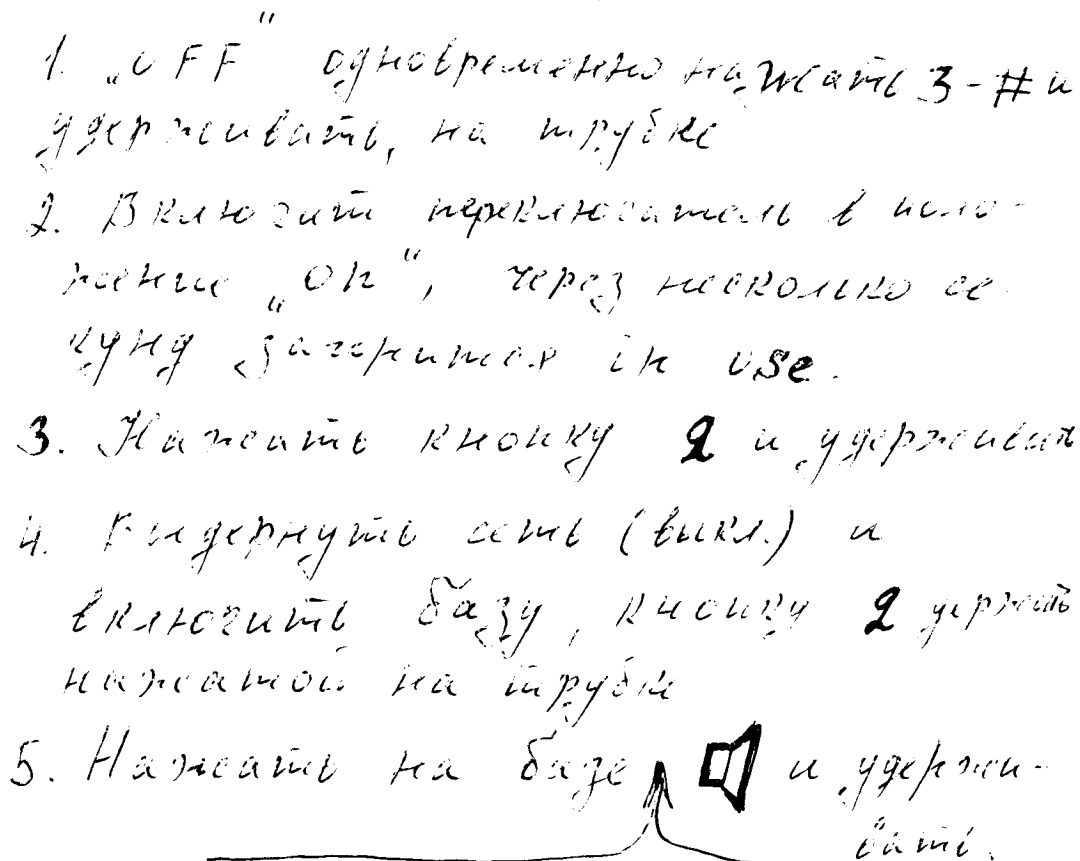 1. „OFF“ одновременно нажать 3-# и
удерживать, на трубке
2. Включит переключатель в поло-
жение „on“, через несколько се-
кунд загорится in use.
3. Нажать кнопку 2 и удерживать
4. Выдернуть сеть (выкл.) и
включить базу, кнопку 2 держать
нажатой на трубке
5. Нажать на базе и удержи-
вать.